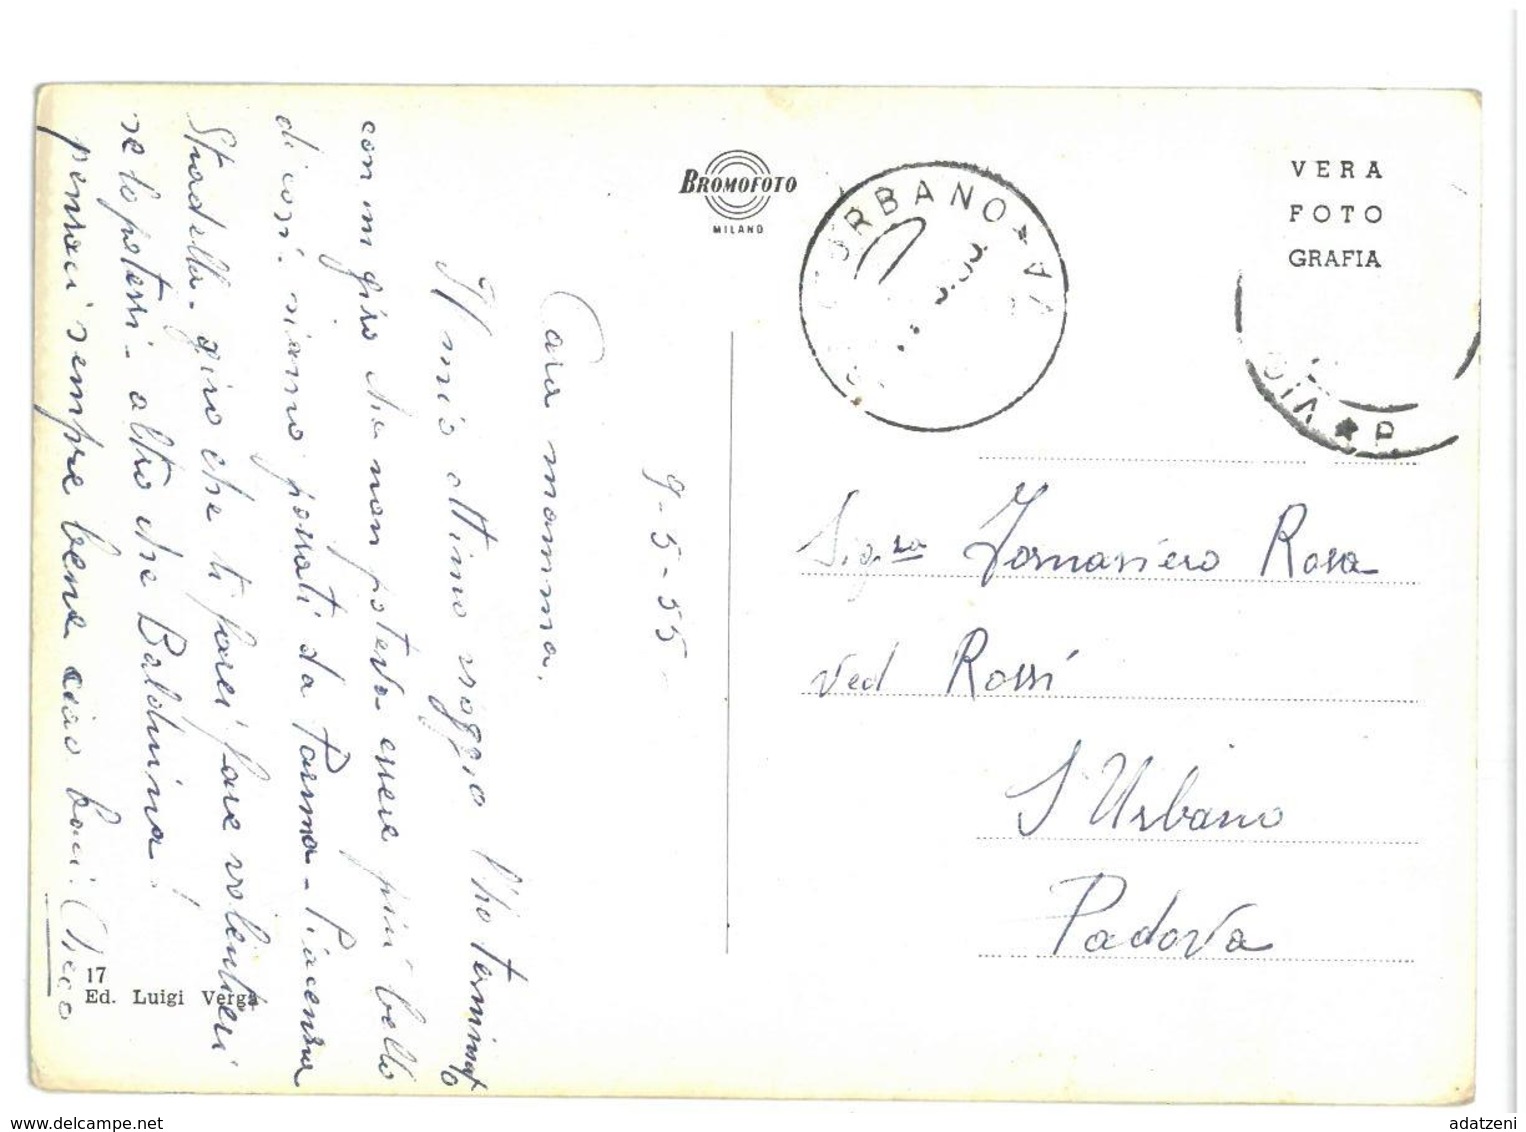 9-5-55
Cara mamma,
Il mio ottimo viaggio l'ho terminato
con un giro che non poteva essere più bello
di così. siamo passati da Parma - Piacenza
Stradella. giro che ti farei fare volentieri
se lo potessi - altro che Balduina!
pensaci sempre bene ciao baci Checco
17
Ed. Luigi Verga
BROMOFOTO
MILANO
URBANO
VERA
FOTO
GRAFIA
Sig.ra Fornasiero Rosa
ved Rossi
S Urbano
Padova
www.delcampe.net
adatzeni